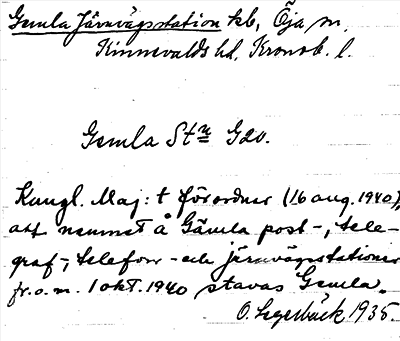 Gemla Järnvägsstation kb, Öja sn,
Kinnevalds hd, Kronob. l.
Gemla Stn Gav.
Kungl. Maj:t förordner (16 aug. 1940),
att namnet å Gämla post-, tele-
graf-, telefon- och järnvägsstationer
fr.o.m. 1 okt. 1940 stavas Gemla.
O. Segerbäck 1935.